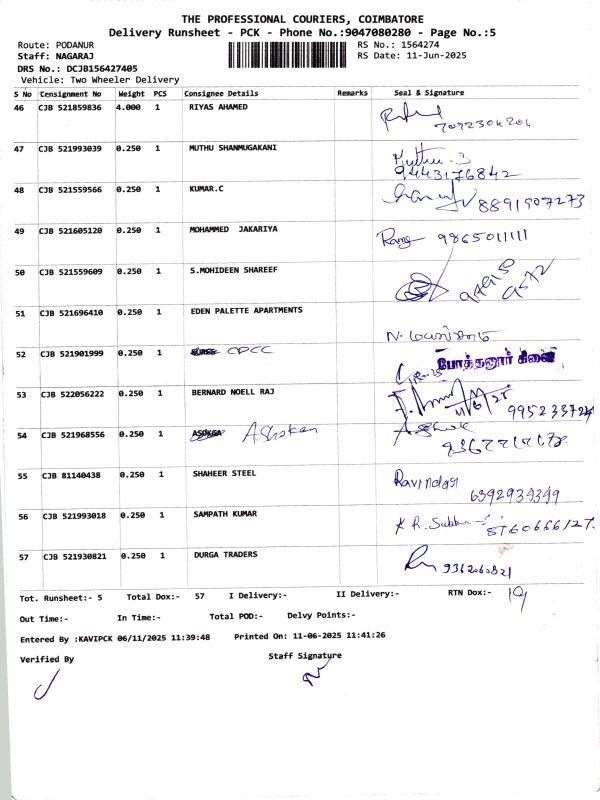 THE PROFESSIONAL COURIERS, COIMBATORE
Delivery Runsheet - PCK - Phone No.:9047080280 - Page No.:5
Route: PODANUR RS No.: 1564274
Staff: NAGARAJ RS Date: 11-Jun-2025
DRS No.: DCJB156427405
Vehicle: Two Wheeler Delivery
S No Consignment No Weight PCS Consignee Details Remarks Seal & Signature
46 CJB 521859836 4.000 1 RIYAS AHAMED
47 CJB 521993039 0.250 1 MUTHU SHANMUGAKANI
9443176842
48 CJB 521559566 0.250 1 KUMAR.C
8891907273
49 CJB 521605120 0.250 1 MOHAMMED JAKARIYA
9865011111
50 CJB 521559609 0.250 1 S.MOHIDEEN SHAREEF
51 CJB 521696410 0.250 1 EDEN PALETTE APARTMENTS
52 CJB 521901999 0.250 1 CPCC
போத்தனூர் கிளை
53 CJB 522056222 0.250 1 BERNARD NOELL RAJ
11/6/25
995233724
54 CJB 521968556 0.250 1 Ashokan
Ashok
55 CJB 81140438 0.250 1 SHAHEER STEEL
Ravindar
6392939349
56 CJB 521993018 0.250 1 SAMPATH KUMAR
K.R. Subbu
8760666127.
57 CJB 521930821 0.250 1 DURGA TRADERS
9362060821
Tot. Runsheet:- 5 Total Dox:- 57 I Delivery:- II Delivery:- RTN Dox:-
Out Time:- In Time:- Total POD:- Delvy Points:-
Entered By :KAVIPCK 06/11/2025 11:39:48 Printed On: 11-06-2025 11:41:26
Verified By Staff Signature